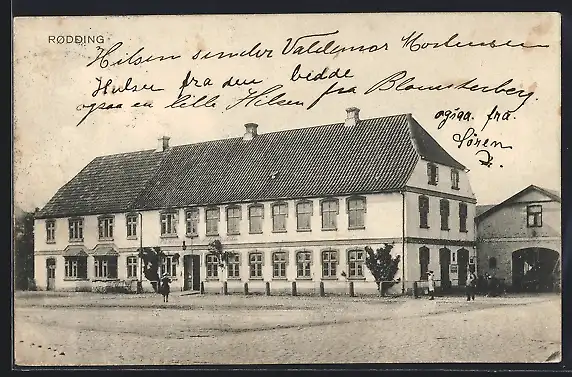 RØDDING
Hilsen sender Valdemar Mortensen
Hulsen fra den bedste
ogsaa en lille Hilsen fra Blomsterberg.
ogsaa. fra.
Sören